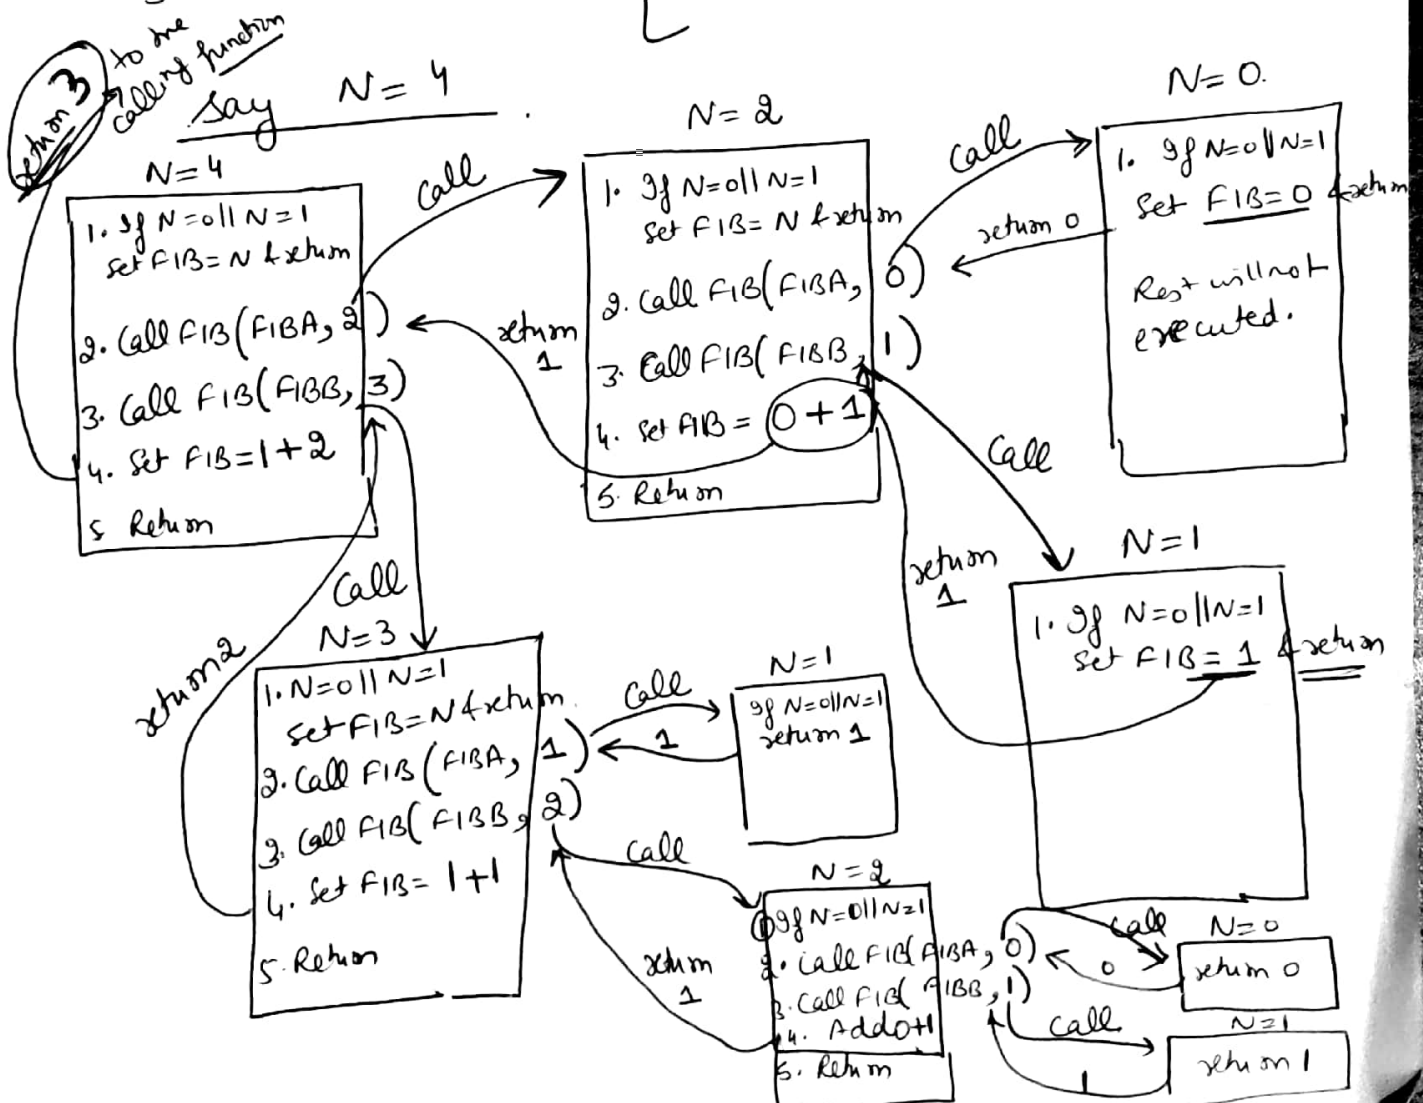 return 3
to the
calling function
Say N = 4
N = 4
1. If N=0 || N=1
Set FIB=N & return
2. Call FIB(FIBA, 2)
3. Call FIB(FIBB, 3)
4. Set FIB=1+2
5 Return
call
return
1
N = 2
1. If N=0 || N=1
Set FIB=N & return
2. Call FIB(FIBA, 0)
3. Call FIB(FIBB, 1)
4. Set FIB = 0+1
5. Return
call
return 0
N=0.
1. If N=0 || N=1
Set FIB=0 & return
Rest will not
executed.
Call
return
1
N=1
1. If N=0 || N=1
Set FIB = 1 & return
Call
return 2
N=3
1. N=0 || N=1
Set FIB=N & return.
2. Call FIB (FIBA, 1)
3. Call FIB( FIBB, 2)
4. Set FIB= 1+1
5. Return
Call
1
N=1
If N=0||N=1
return 1
Call
return
1
N=2
1 If N=0||N=1
2. Call FIB(FIBA, 0)
3. Call FIB( FIBB, 1)
4. Add 0+1
5. Return
Call
0
N=0
return 0
Call
1
N=1
return 1